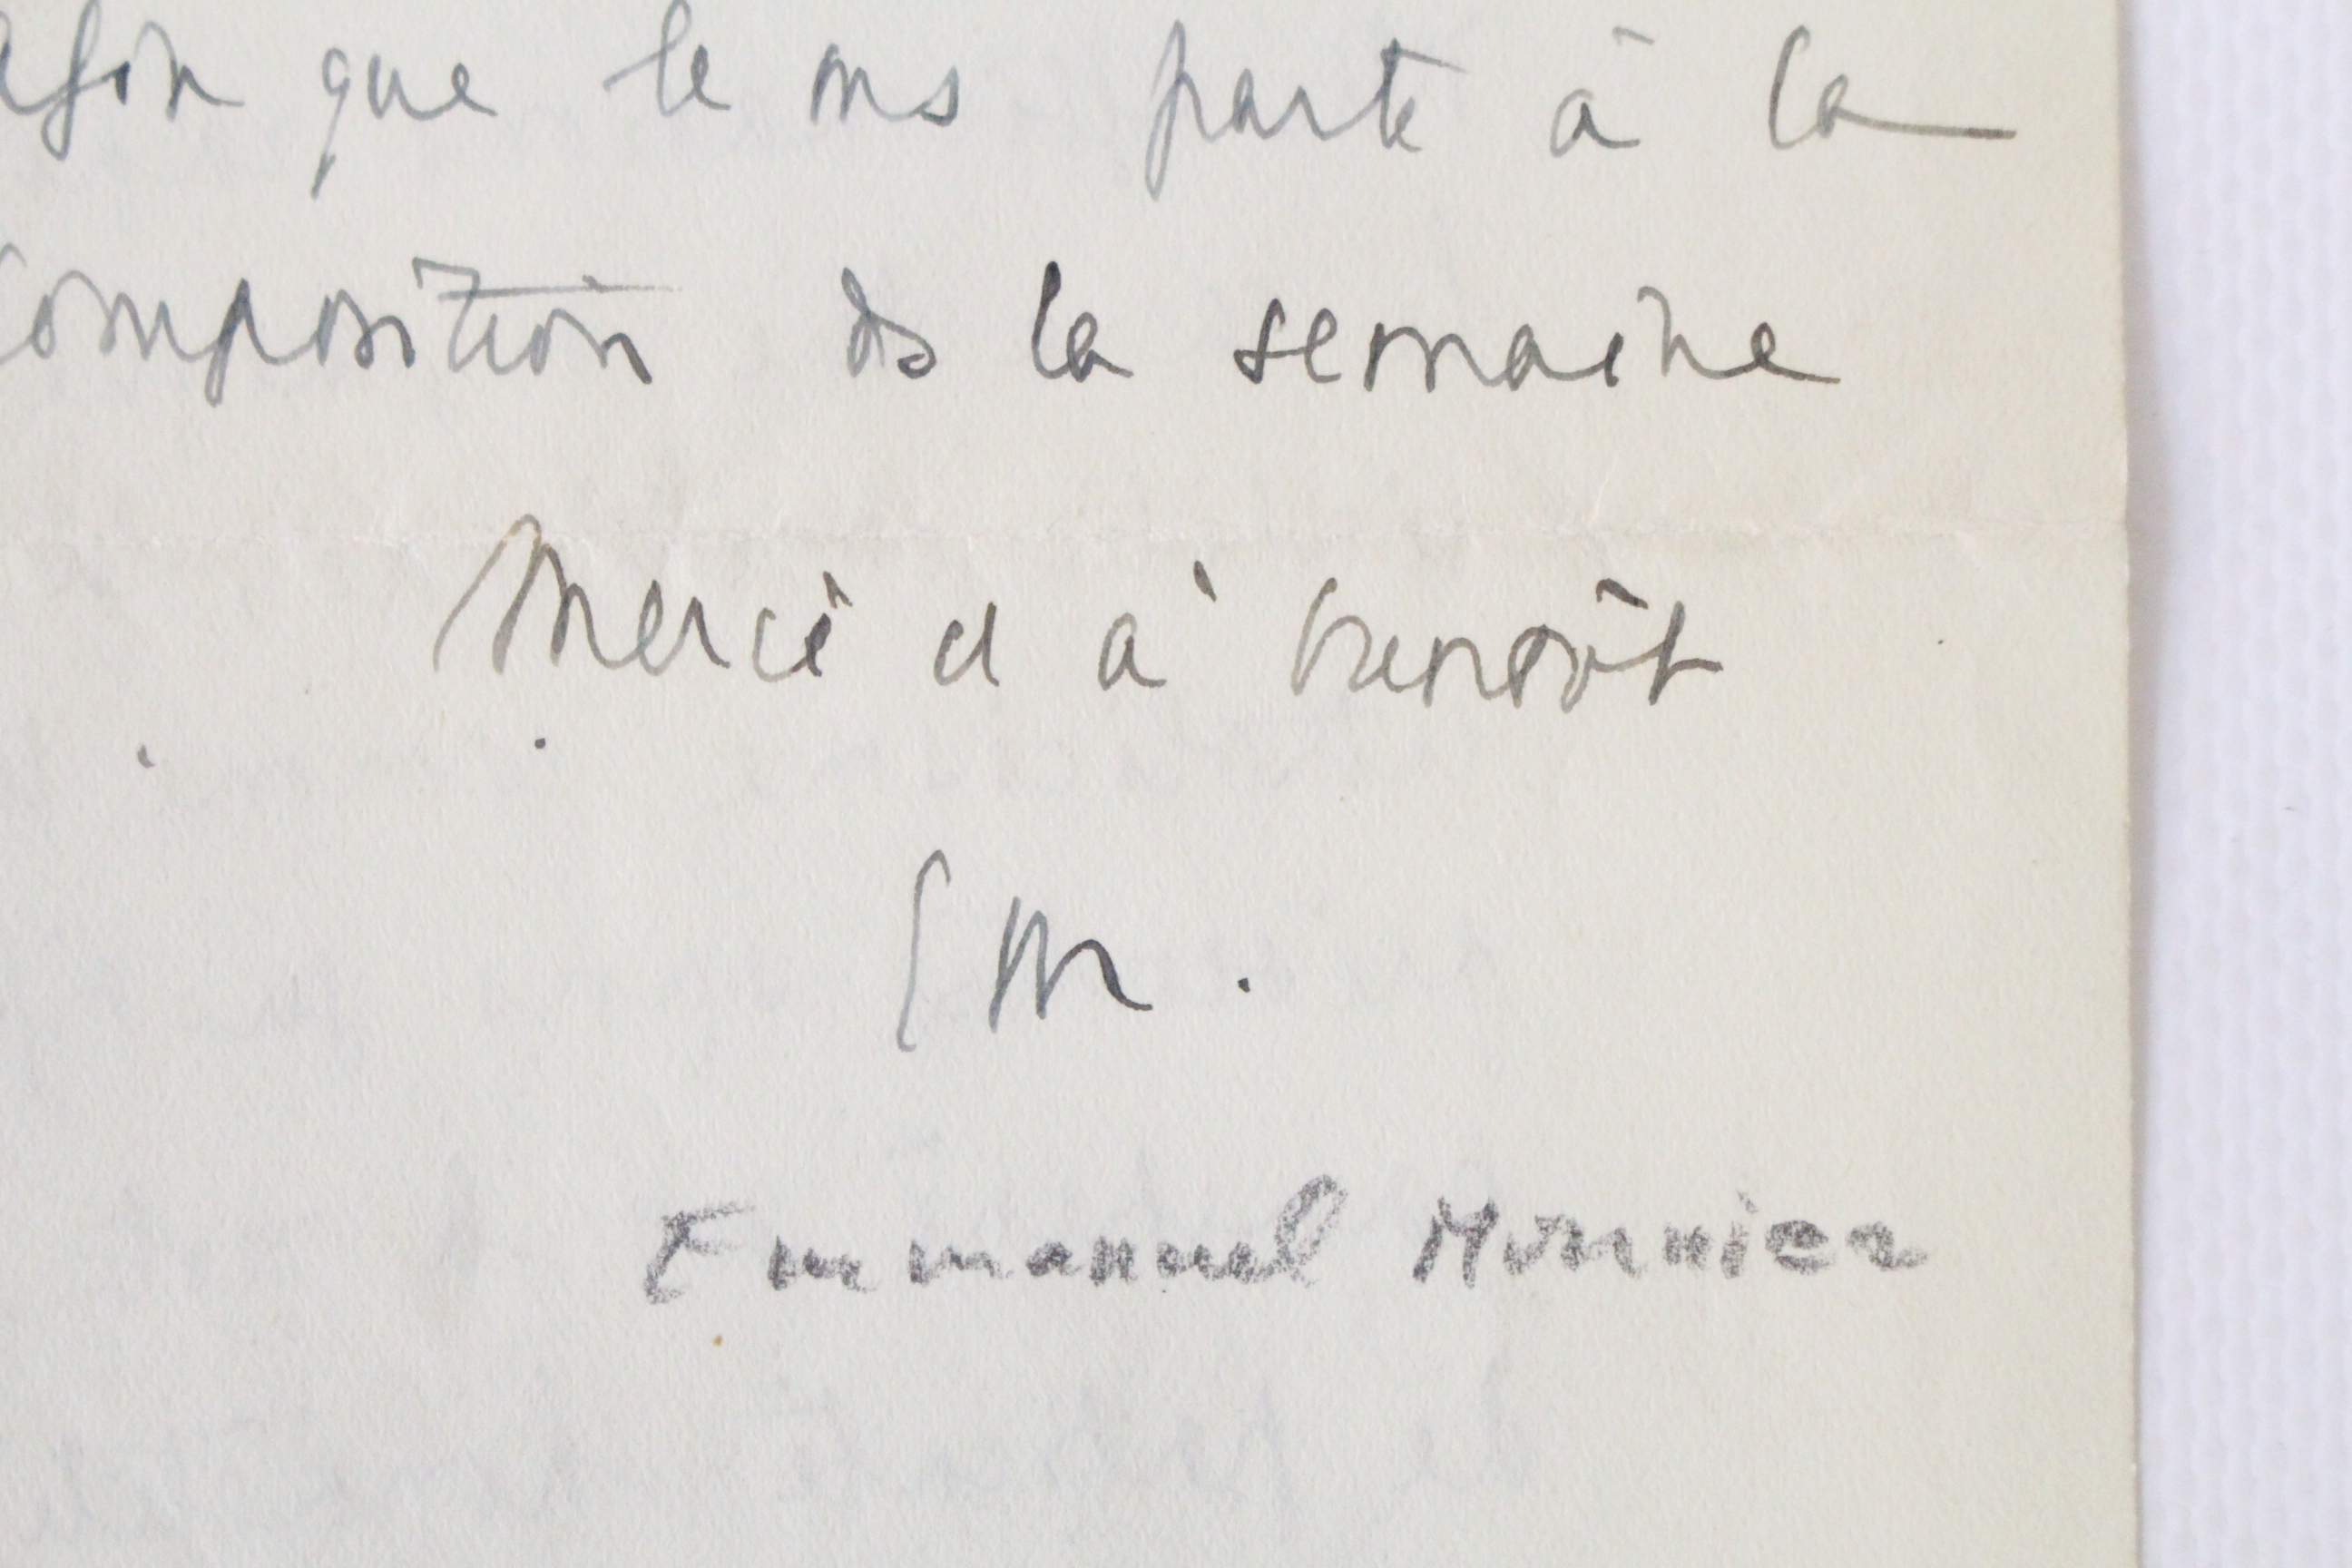 afin que le ms parte à la
composition ds la semaine
Merci et à bientôt
EM.
Emmanuel Mounier